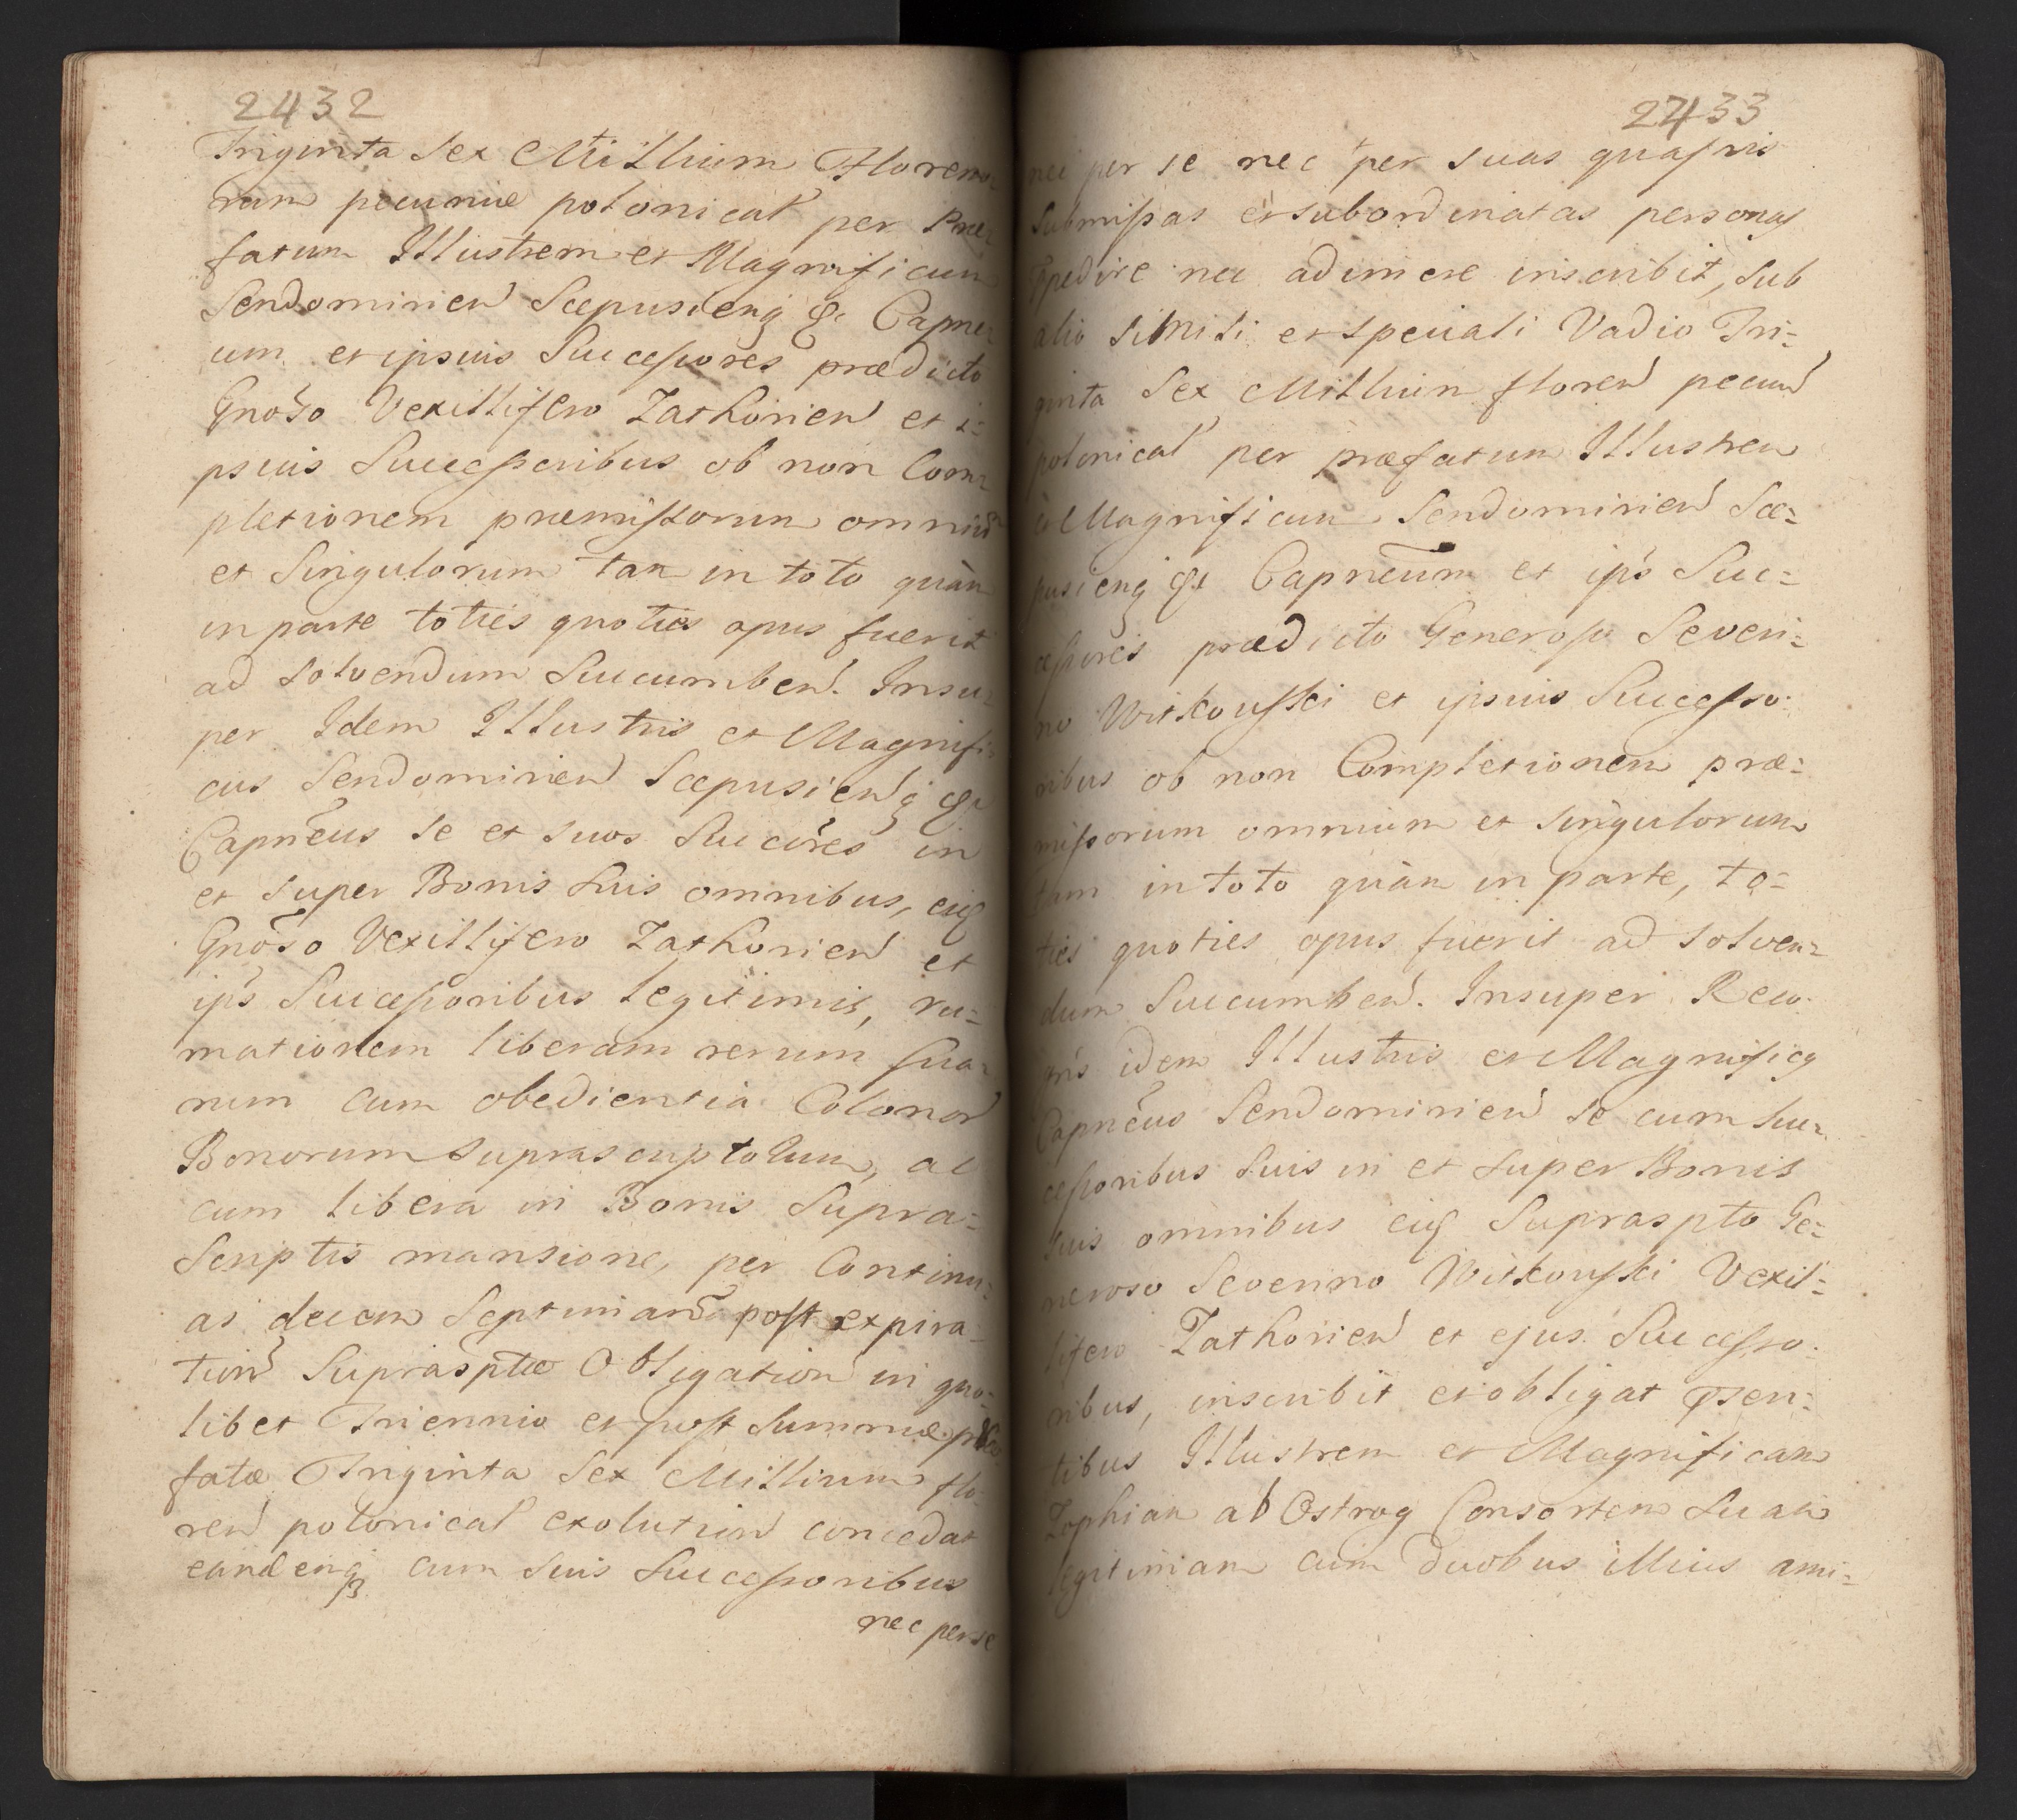 2432
Triginta Sex Millium Floreno-
rum pecuniæ polonical per Præ-
fatum Illustrem et Magnificum
Sendomirien Scepusienq & Capne-
um et ipsius Successores prædicto
Gnoso Vexillifero Zathorien et i-
psius Successoribus ob non Com-
pletionem præmissorum omniu
et Singulorum tam in toto quàm
in parte toties quoties opus fuerit
ad solvendum Succumben. Insu-
per Idem Illustris et Magnifi-
cus Sendomirien Scepusienq &
Capneus se et suos Succres in
et super Bonis suis omnibus, eiq
Gnoso Vexillifero Zathorien et
ips Successoribus legitimis, ru-
mationem liberam rerum sua-
rum cum obedientia Colonor
Bonorum suprascriptorum, ac
cum libera in Bonis Supra-
scriptis mansione, per Continu-
as decem Septimanas post expira-
tion Supraspte Obligation in quo-
libet Triennio et post Summæ præ-
fatæ Triginta Sex Millium flo-
ren polonical exolution concedat
eandenq cum suis Successoribus
nec per se
2433
nec per se nec per suas quasvis
submissas et subordinatas personas
Impedire nec adimere inscribit, sub
alio simili et speciali Vadio Tri-
ginta Sex Millium floren pecun
polonical per præfatum Illustrem
et Magnificum Sendomirien Sce-
pusienq & Capneum et ips Suc-
cessores prædicto Generoso Severi-
no Witkowski et ipsius Successo-
ribus ob non Completionem præ-
missorum omnium et singulorum
tam in toto quàm in parte, to-
ties quoties opus fuerit ad solven-
dum Succumben. Insuper Reco-
gns idem Illustris et Magnificq
Capneus Sendomirien se cum Suc-
cessoribus suis in et super Bonis
suis omnibus eiq Supraspto Ge-
neroso Severino Witkowski Vexil-
lifero Zathorien et ejus Successo-
ribus, inscribit et obligat psen-
tibus Illustrem et Magnificam
Zophiam ab Ostrog Consortem Suam
legitimam cum duobus illius ami-